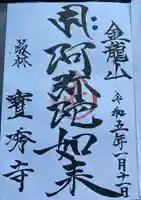 金龍山
令和五年一月十一日
開阿弥陀如来
叢林
寶秀寺